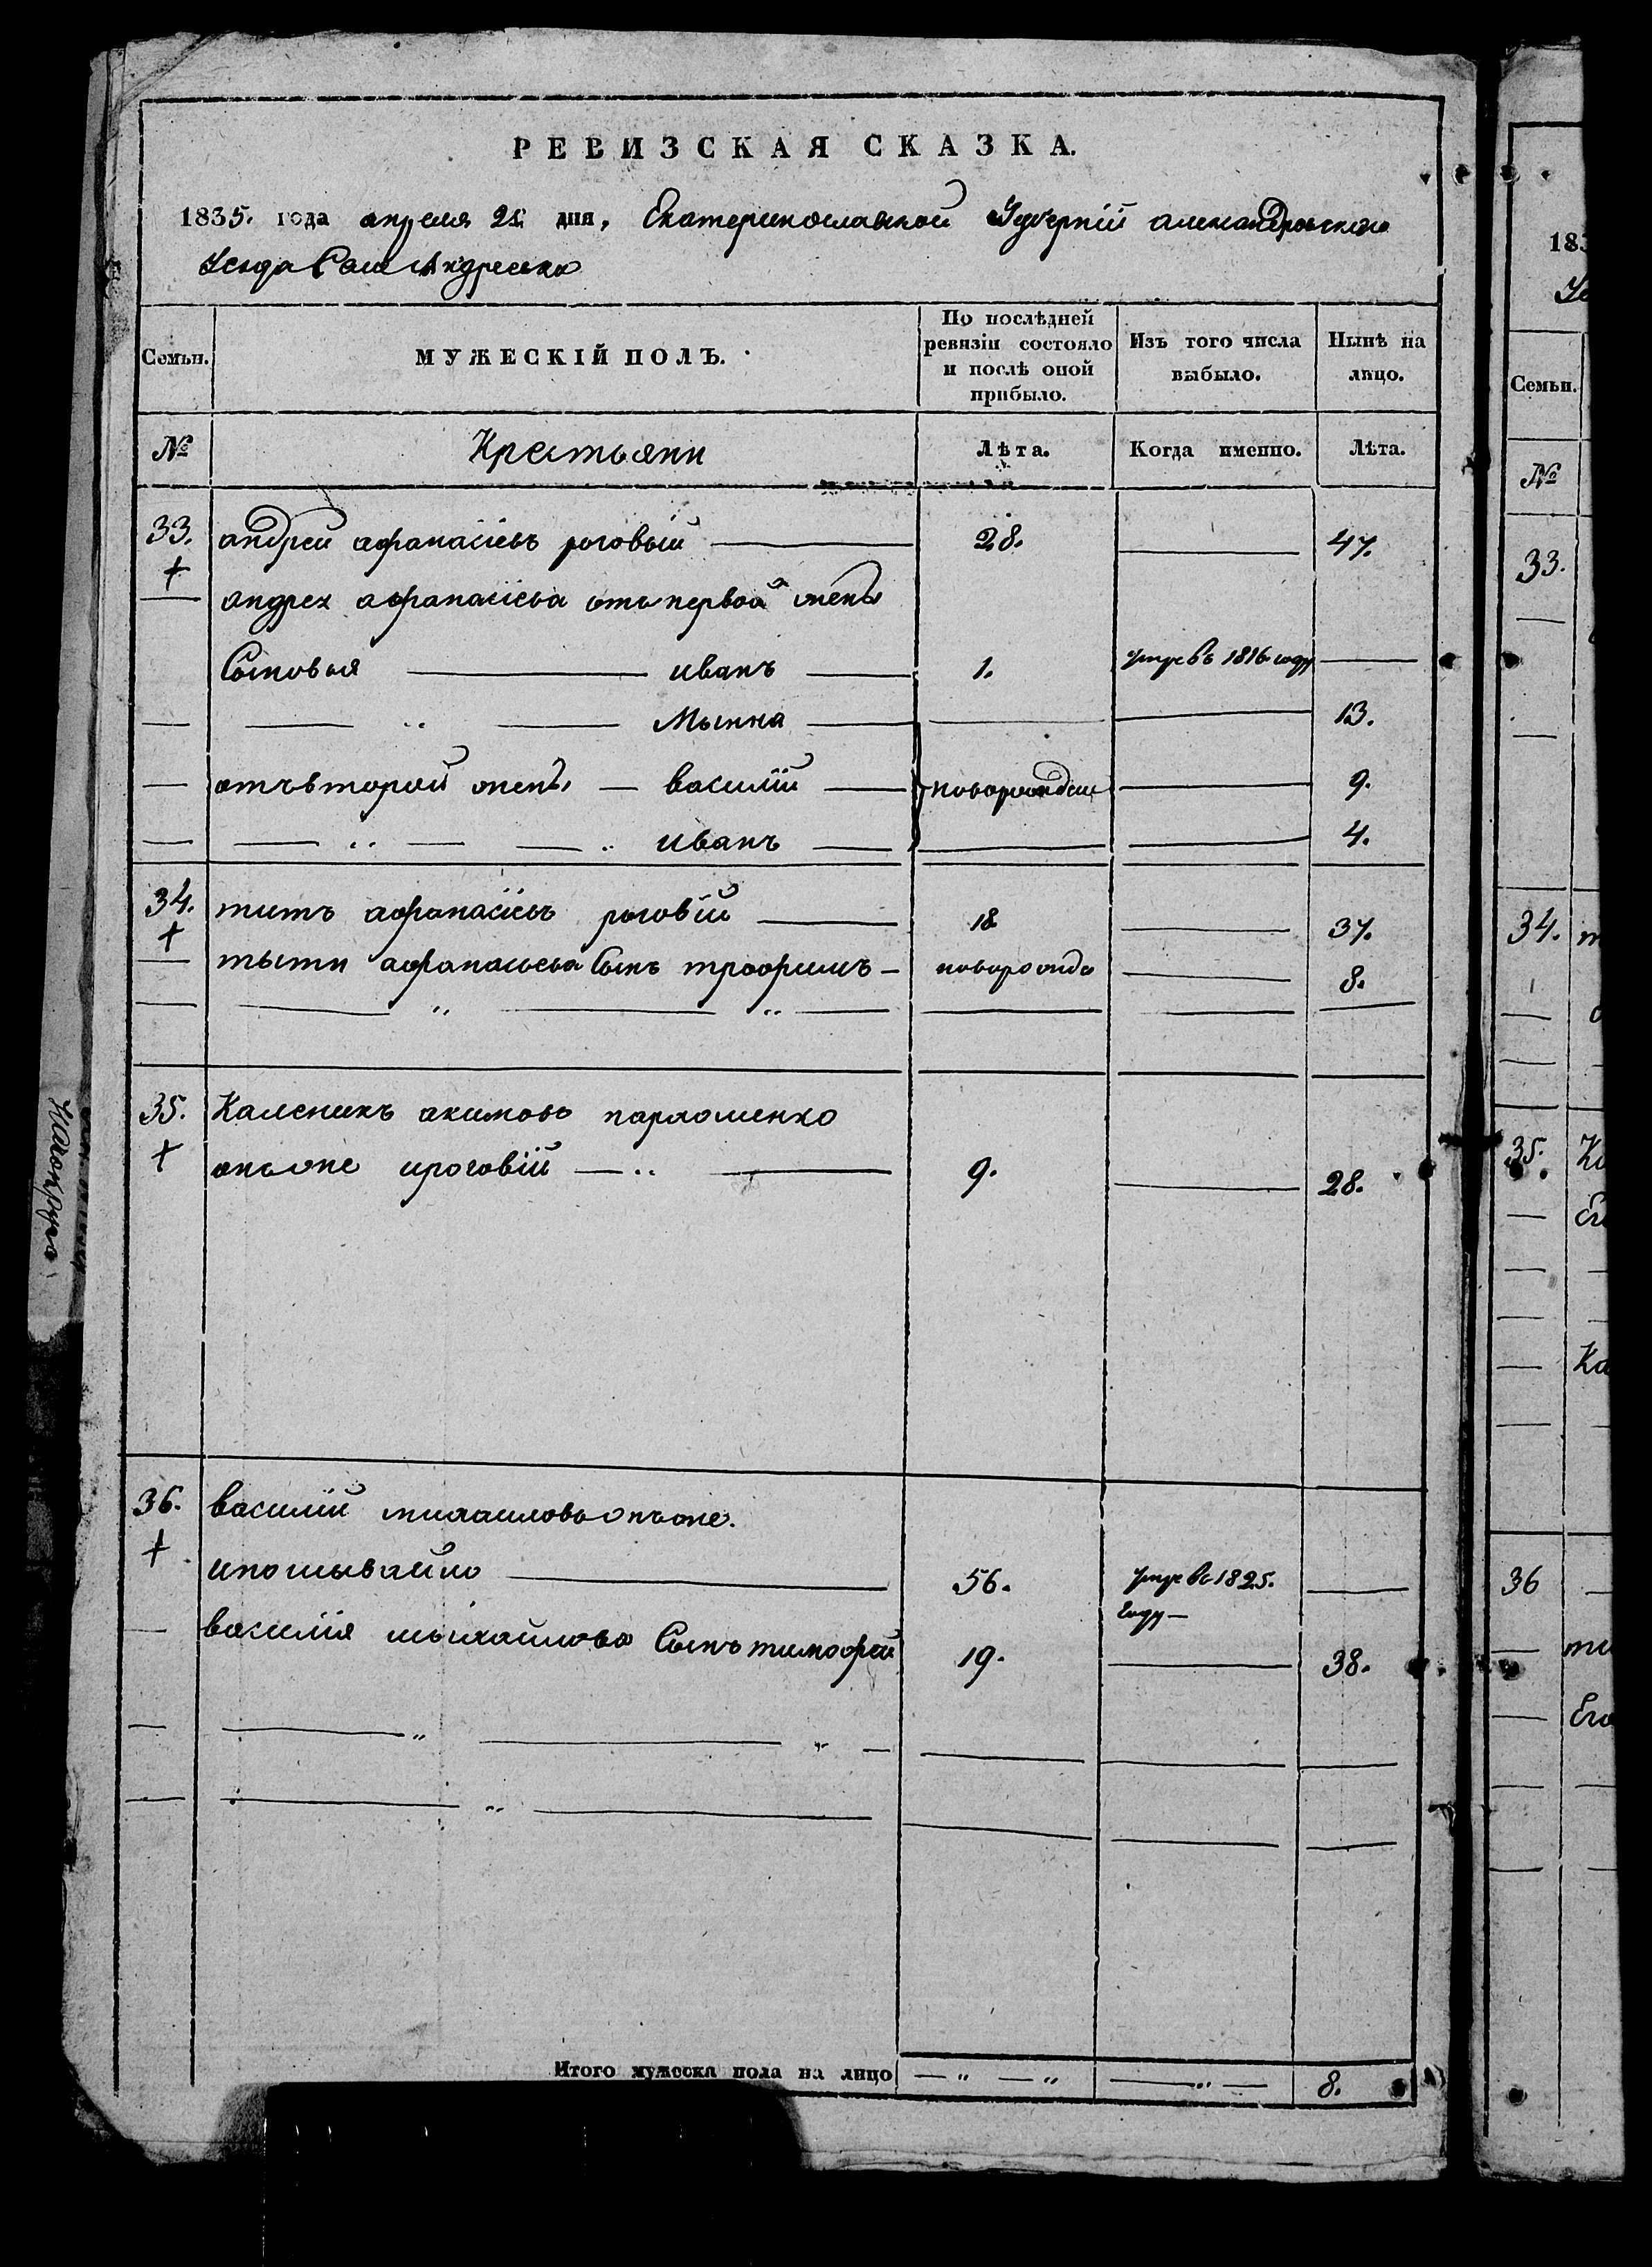 РЕВИЗСКАЯ СКАЗКА.
1835. года апреля 25 дня, Екатеринославской Губернїй александровского
Уезда Села Андреевка
Семьи. МУЖЕСКІЙ ПОЛЪ. По послѣдней ревизіи состояло и послѣ оной прибыло. Изъ того числа выбыло. Нынѣ на лицо.
№ Крестьяни Лѣта. Когда именно. Лѣта.
33. андрей афанасїевъ роговый 28. 47.
андрея афанасїева отъ первой жены
Сыновья иванъ 1. умре въ 1816 году
Мыина 13.
отъ второй жены василїй новорожден 9.
иванъ 4.
34. титъ афанасїевъ роговїй 18 37.
тыта афанасьева Сынъ трофимъ новорожде 8.
35. Каленикъ акимовъ пархоменко
онъ же ироговїй 9. 28.
36. василїй михаиловъ онъ же.
ипошывайло 56. умре в 1825.
году
василїя мыхайлова Сынъ тимофей 19. 38.
Итого мужеска пола на лицо 8.
183
Семьи.
№
33.
34.
35.
36